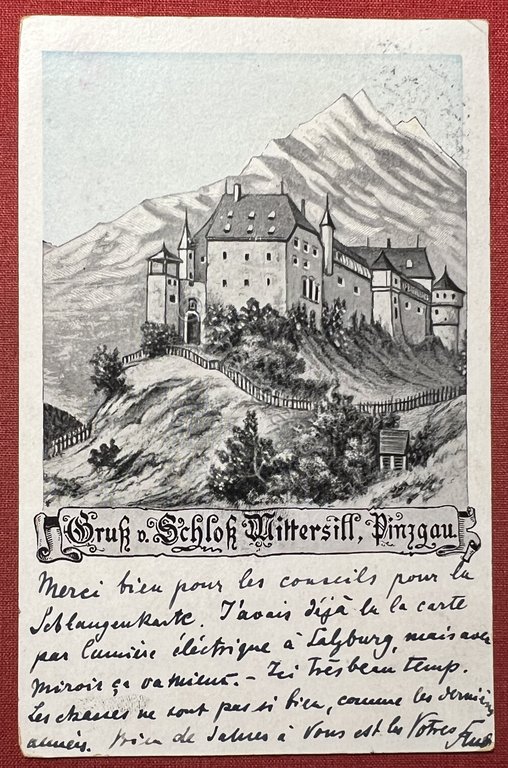 Gruß v. Schloß Mittersill, Pinzgau
Merci bien pour les conseils pour la
Schlangenkarte. J'avais déjà lu la carte
par lumière éléctrique à Salzburg, mais avec
miroir ça va mieux. – Ici très beau temp.
Les chasses ne sont pas si bien, comme les dernièr
années. de à Vous et les Vôtres